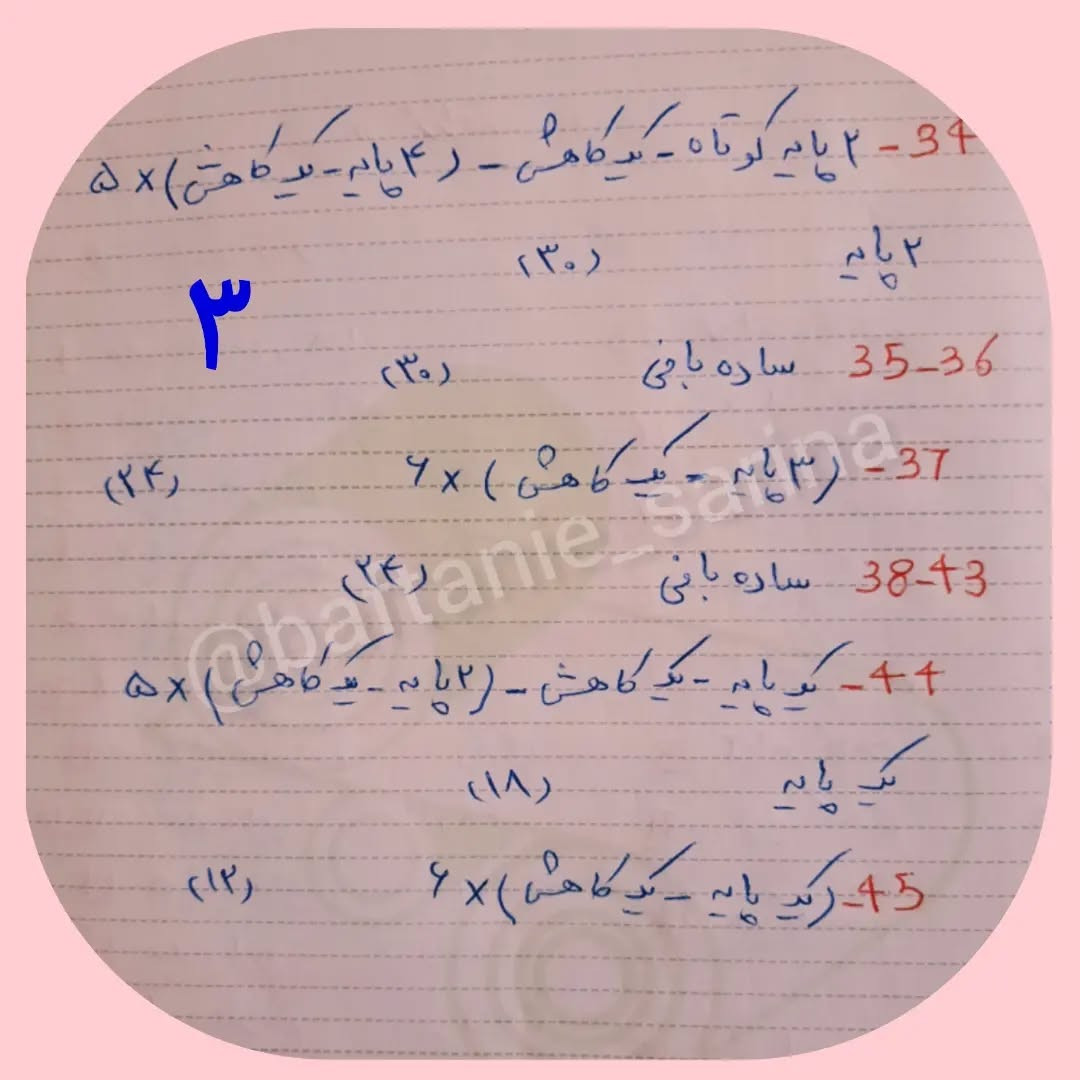 34- ۲ پایه کوتاه - یک کاهش - (۴ پایه - یک کاهش) × ۵
۲ پایه (۳۰)
۳
35-36 ساده بافی (۳۰)
37- (۳ پایه - یک کاهش) × ۶ (۲۴)
38-43 ساده بافی (۲۴)
@baftanie_sarina
44- یک پایه - یک کاهش - (۲ پایه - یک کاهش) × ۵
یک پایه (۱۸)
45- (یک پایه - یک کاهش) × ۶ (۱۲)